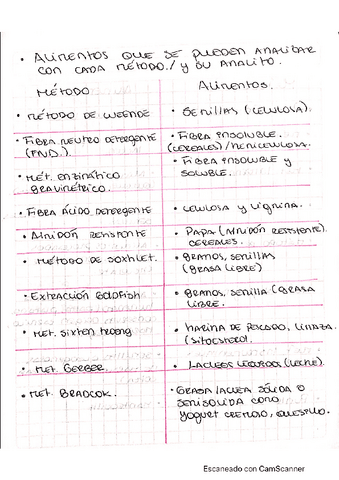 • ALIMENTOS QUE SE PUEDEN ANALIZAR
CON CADA MÉTODO./ y SU ANALITO.
MÉTODO
ALIMENTOS.
• MÉTODO DE WEENDE
• SEMILLAS (CELULOSA).
• FIBRA NEUTRO DETERGENTE
(FND).
• FIBRA INSOLUBLE.
(CEREALES) / HEMICELULOSA.
• MÉT. ENZIMÁTICO
GRAVIMÉTRICO.
• FIBRA INSOLUBLE y
SOLUBLE.
• FIBRA ÁCIDO DETERGENTE
• CELULOSA y LIGNINA.
• ALMIDÓN RESISTENTE
• PAPA (ALMIDÓN RESISTENTE).
CEREALES.
• MÉTODO DE SOXHLET.
• GRANOS, SEMILLAS
(GRASA LIBRE)
• EXTRACCIÓN GOLDFISH
• GRANOS, SEMILLA (GRASA
LIBRE.
• MET. SIXTEN
• HARINA DE PESCADO, LINAZA
(SITOESTEROL.
• MET. GERBER.
• LÁCTEOS LÍQUIDOS (LECHE).
• MET. BRADCOK.
• GRASA LÁCTEA SÓLIDA O
SEMISÓLIDA COMO
YOGURT CREMOSO, QUESILLO.
Escaneado con CamScanner